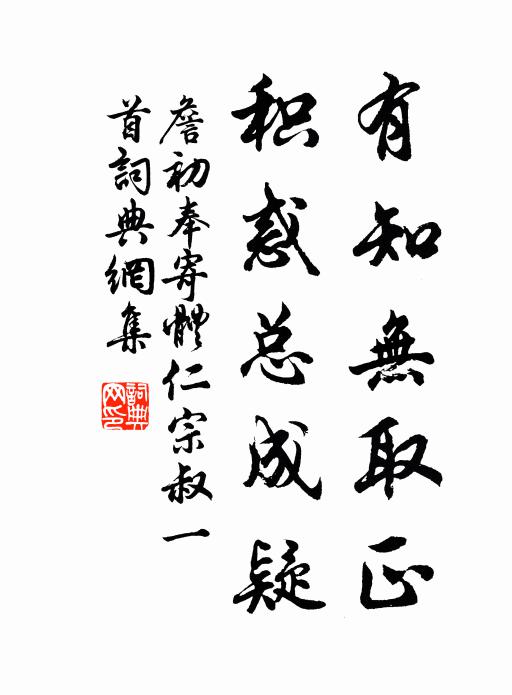 有知無取正
积惑总成疑
詹初奉寄體仁宗叔一
首詞典網集
詞典
网印